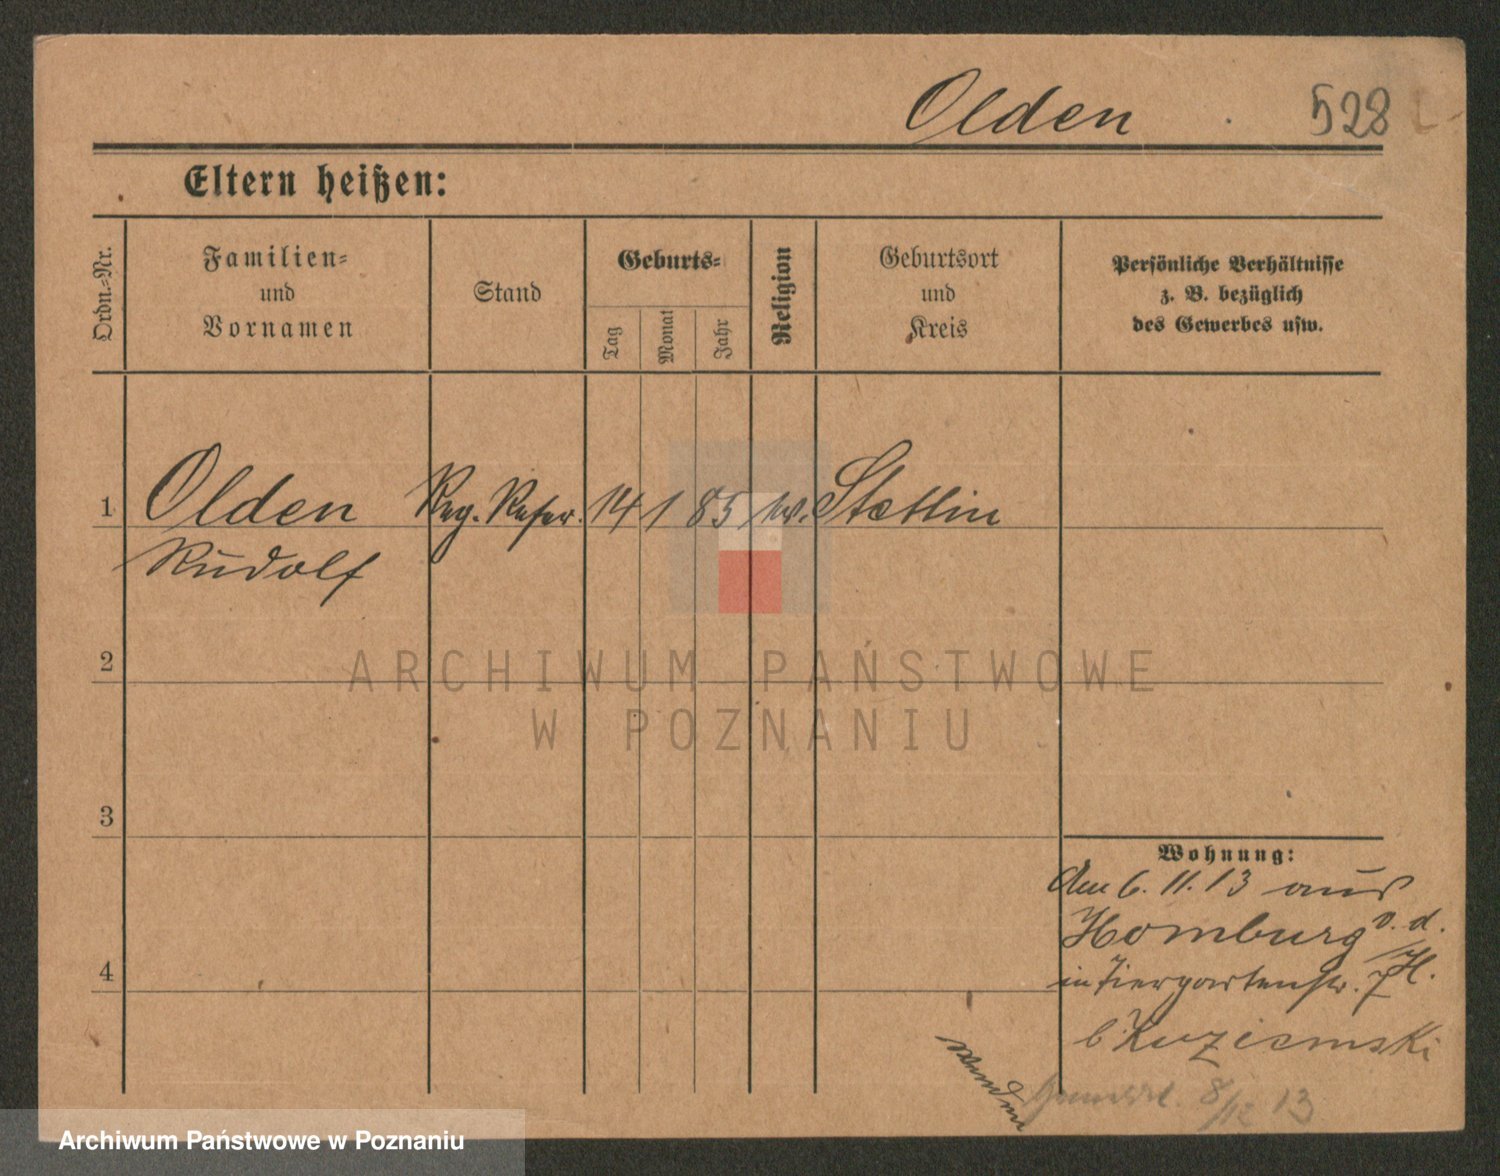 Olden 528
Eltern heißen:
Ordn.-Nr.
Familien-
und
Vornamen
Stand
Geburts-
Tag
Monat
Jahr
Religion
Geburtsort
und
Kreis
Persönliche Verhältnisse
z. B. bezüglich
des Gewerbes usw.
1 Olden Reg. Refer. 14 1 85 Stettin
Rudolf
2
ARCHIWUM PAŃSTWOWE
W POZNANIU
3
Wohnung:
Am 6. 11. 13 aus
Homburg v. d.
H.
in Tiergartenstr. 7
b. Kuziemski
4
wenden
8/12 13
Archiwum Państwowe w Poznaniu